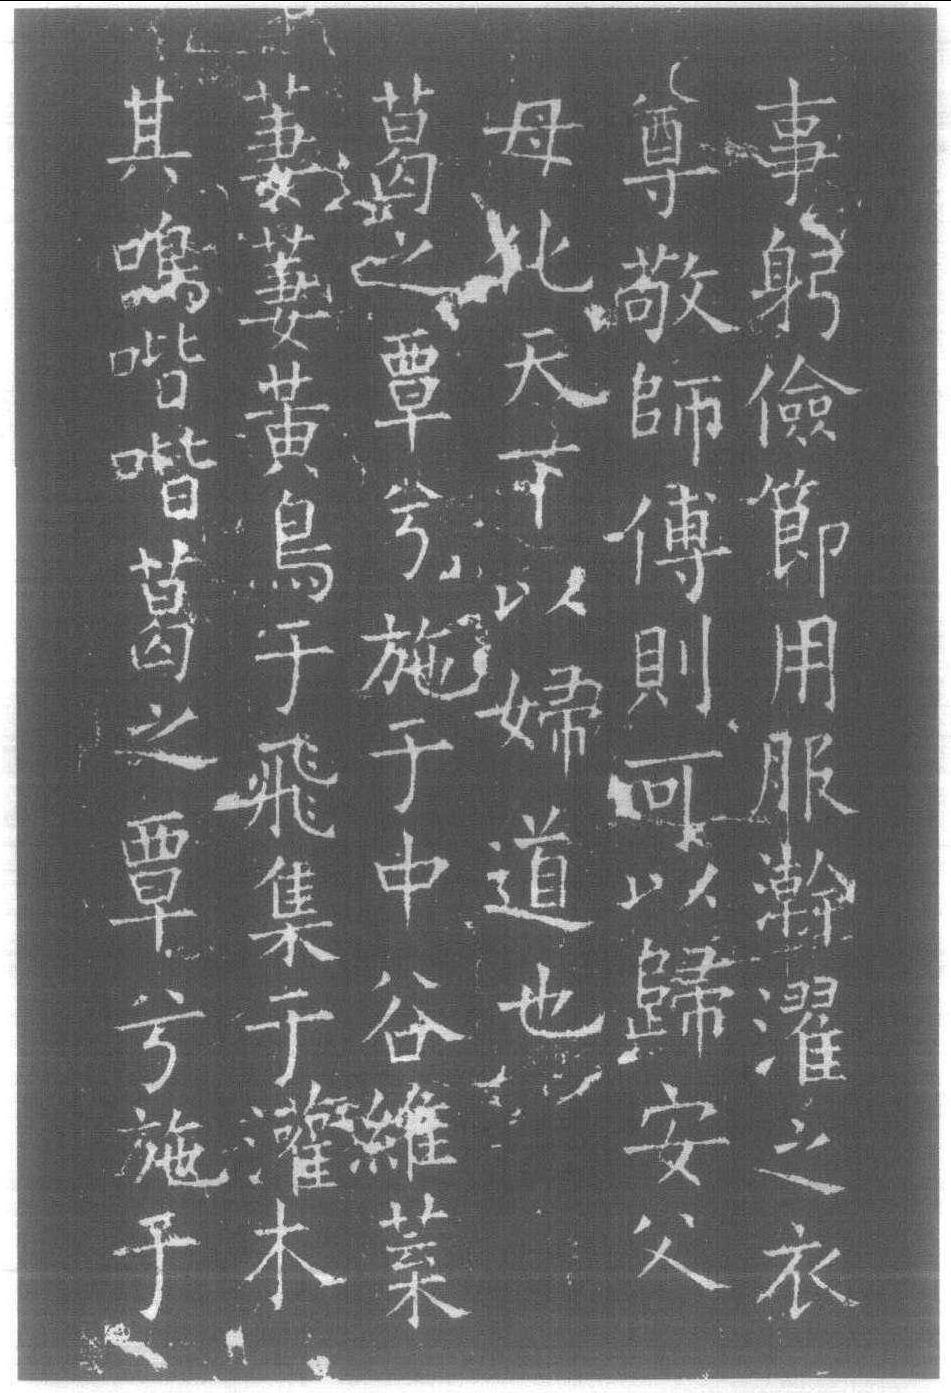 事躬儉節用服澣濯之衣
尊敬師傅則可以歸安父
母化天下以婦道也
葛之覃兮施于中谷維葉
萋萋黃鳥于飛集于灌木
其鳴喈喈葛之覃兮施于